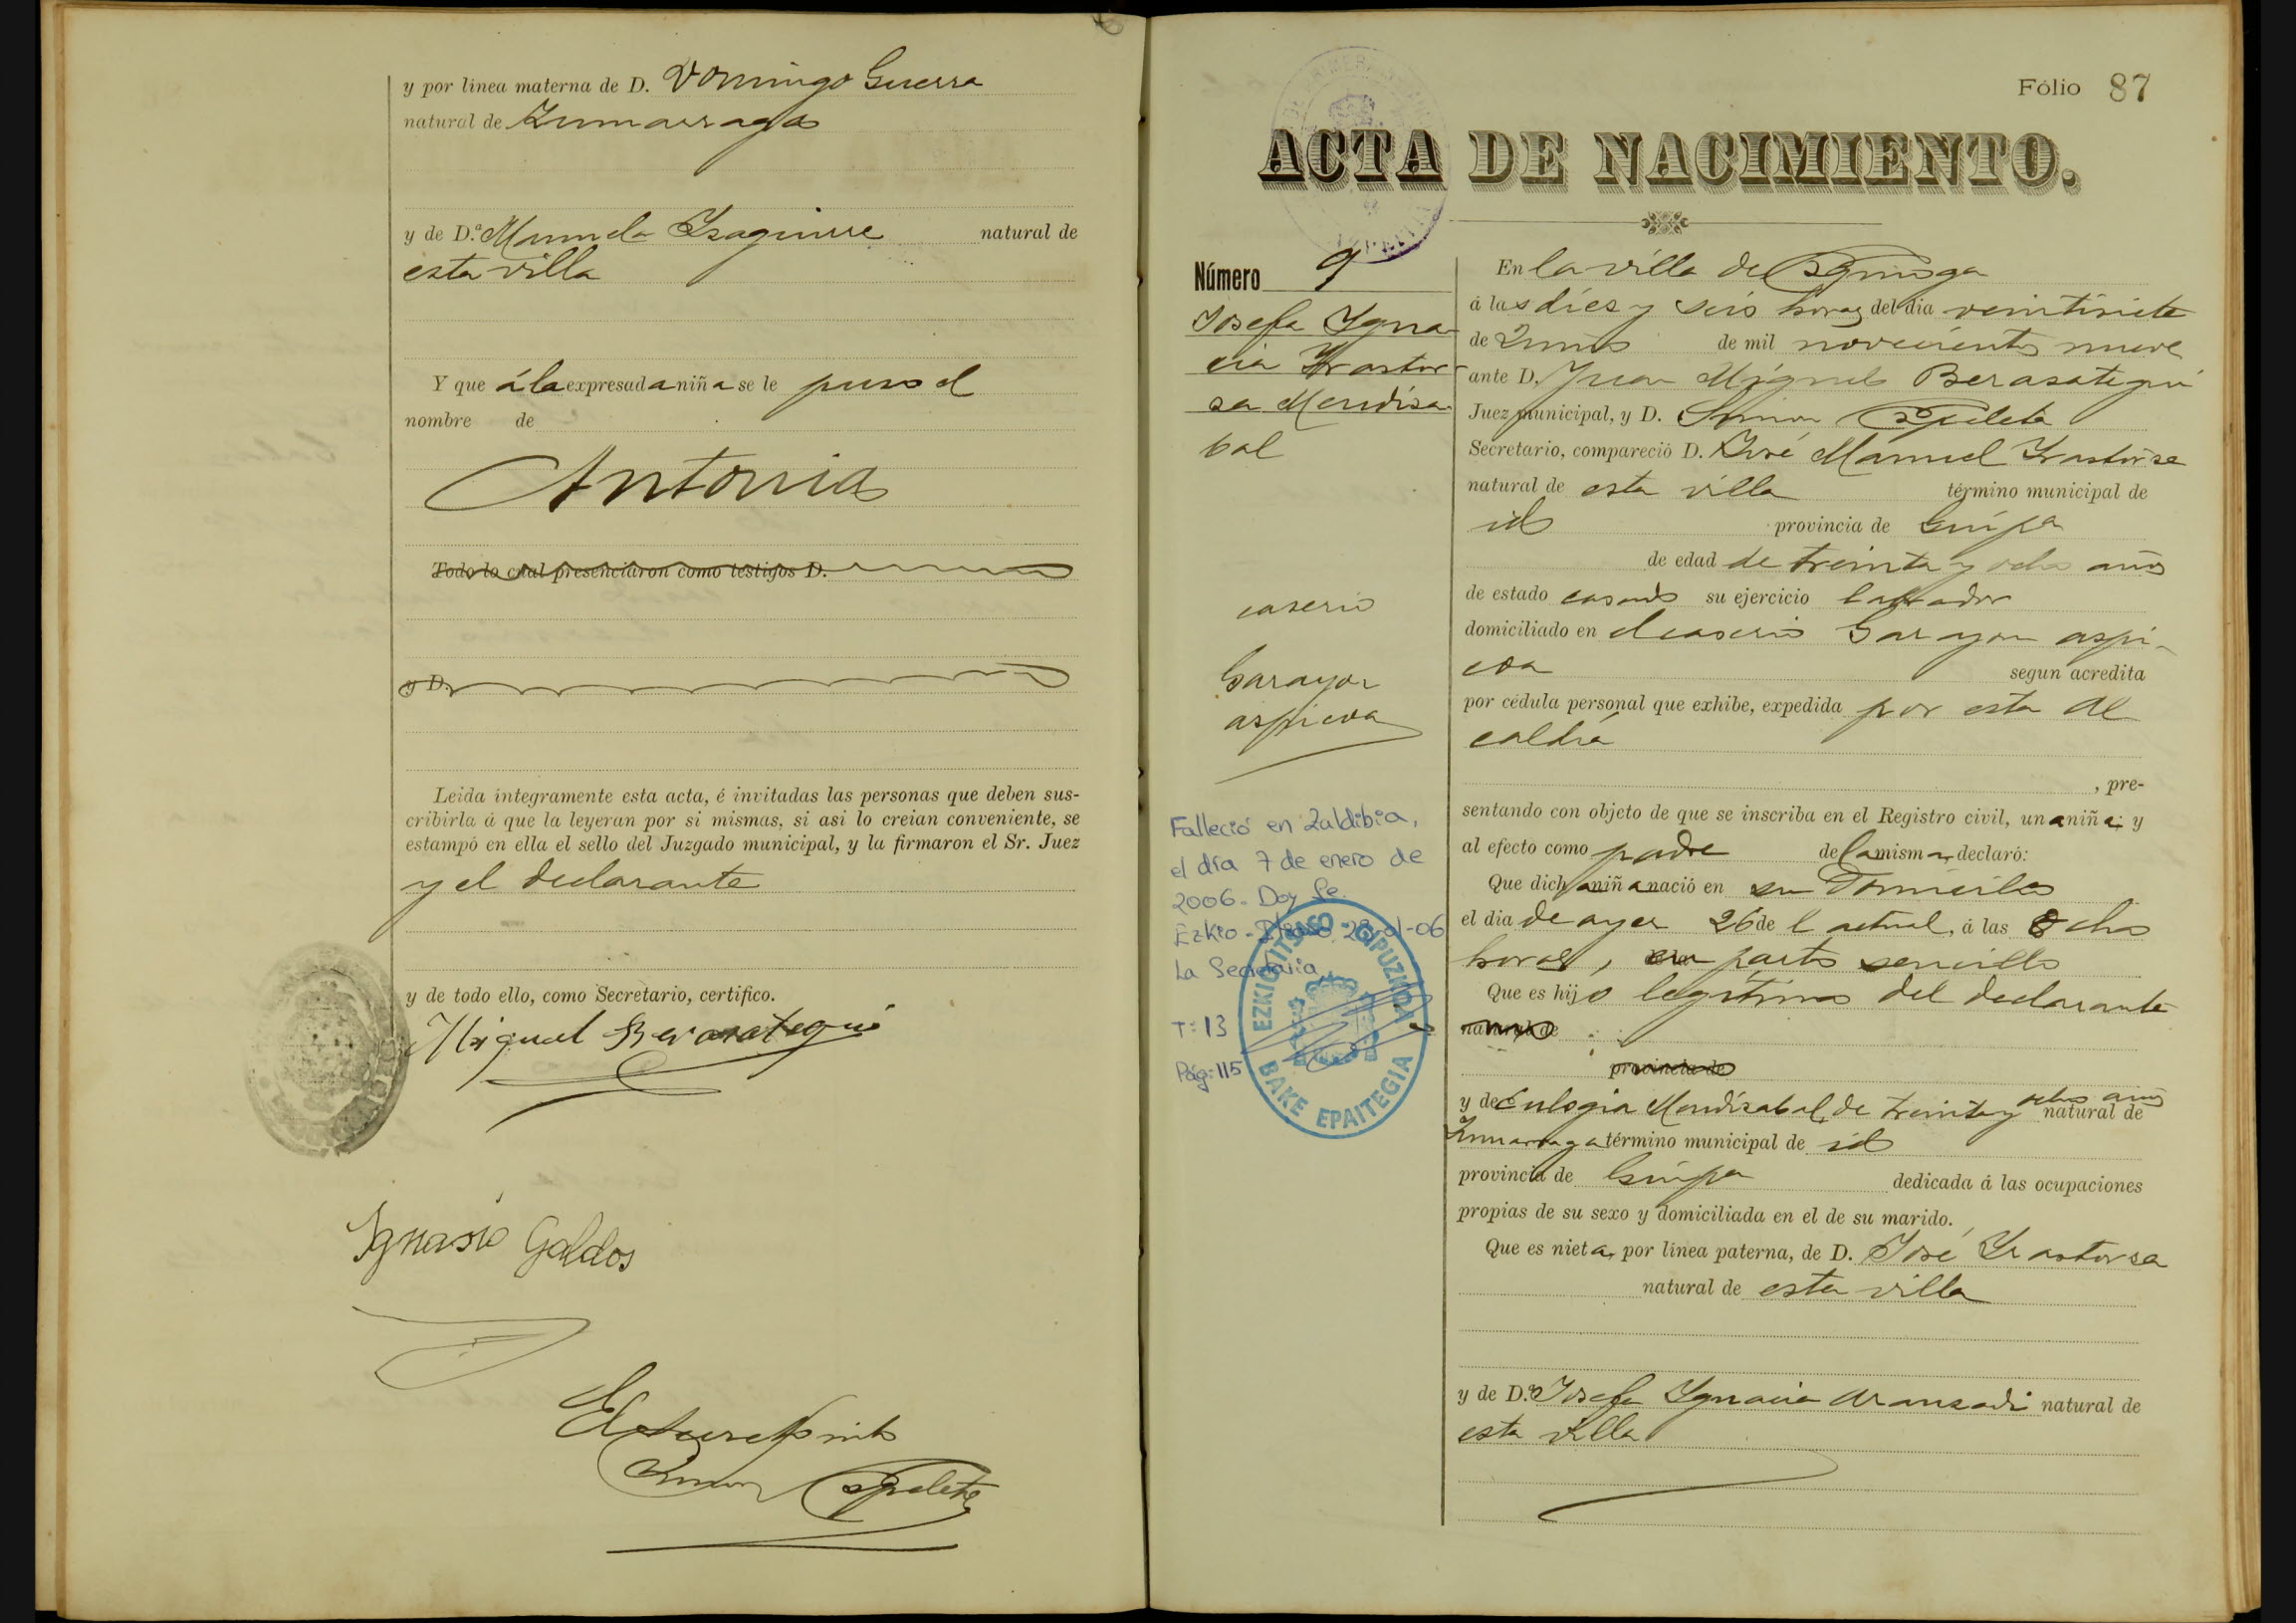 y por línea materna de D. Domingo Guerra
natural de Zumarraga
y de D.ª Manuela Yzaguirre natural de
esta villa
Y que á la expresada niña se le puso el
nombre de
Antonia
Todo lo cual presenciaron como testigos D.
y D.
Leida íntegramente esta acta, é invitadas las personas que deben sus-
cribirla á que la leyeran por si mismas, si asi lo creian conveniente, se
estampó en ella el sello del Juzgado municipal, y la firmaron el Sr. Juez
y el declarante
y de todo ello, como Secretario, certifico.
Miguel Berasategui
Ignasio Galdos
Simon Ezpeleta
Fólio 87
ACTA DE NACIMIENTO.
Número 9
Josefa Ygna
cia Yrastor
za Mendiza
bal
caserio
Garayoa
aspicoa
Falleció en Zaldibia,
el día 7 de enero de
2006. Doy fe.
Ezkio-Itsaso, -01-06
La Secretaria
T: 13
Pág: 115
EZKIO-ITSASO - GIPUZKOA
BAKE EPAITEGIA
En la villa de Ezquioga
á las dies y seis horas del dia veintisiete
de Junio de mil novecientos nueve
ante D. Juan Miguel Berasategui
Juez municipal, y D. Simon Ezpeleta
Secretario, compareció D. José Manuel Yrastorza
natural de esta villa término municipal de
id provincia de Guipa
de edad de treinta y ocho años
de estado casado su ejercicio labrador
domiciliado en el caserio Garayoa aspi-
coa segun acredita
por cédula personal que exhibe, expedida por esta Al
caldía
, pre-
sentando con objeto de que se inscriba en el Registro civil, una niña; y
al efecto como padre de la misma, declaró:
Que dicha niña nació en su domicilio
el dia de ayer 26 de l actual, á las ocho
horas, en parto sencillo
Que es hijo legitimo del declarante
natural de
provincia de
y de Eulogia Mendizabal, de treinta y ocho años natural de
Zumarraga término municipal de id
provincia de Guipa dedicada á las ocupaciones
propias de su sexo y domiciliada en el de su marido.
Que es nieta, por línea paterna, de D. José Yrastorza
natural de esta villa
y de D.ª Josefa Ygnacia Aranzadi natural de
esta villa